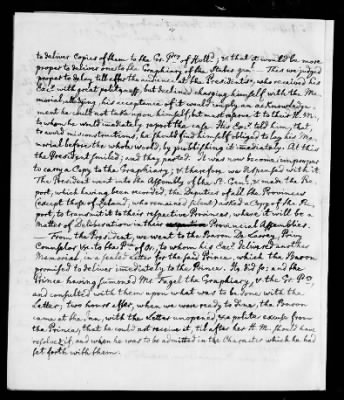 to deliver Copies of them to the Gr. Pen. of Holld. ; & that it would be more
proper to deliver one to the Graphiary of the States genl. — This we judged
proper to delay till after the audience at the Presidents, who received his
Excy. with great politeness, but declined charging himself with the Me-
morial alledging, his acceptance of it would imply an acknowledge-
ment he could not take upon himself, but must appear to their H. M.
to whom he wold imediately report the case. His Excy. told him, that
to avoid misconstructions, he should find himself obliged to lay his Me-
morial before the whole world, by publishing it imediately. At this
the President smiled; and they parted. It was now become improper
to carry a Copy to the Graphiary; & therefore we dispensed with it.
The President went into the Assembly of the St. Genl. & made the Re-
port, which having been recorded, the Deputies of all the Provinces
(except those of Zeland, who remained silent) noted a Copy of the Re-
port, to transmit it to their respective Provinces, where it will be a
Matter of Deliberation in their Provincial Assemblies.
From the President, we went to the Baron De Larrey, Privy
Counsellor &c. to the Pce. of Or, to whom his Excy. delivered another
Memorial, in a sealed Letter for the said Prince, which the Baron
promised to deliver imediately to the Prince. He did so; and the
Prince having sumoned Mr. Fagel the Graphiary, & the Gr. Pen.
and consulted with them upon what was to be done with the
Letter; Two hours after, when we were ready to dine, the Baron
came at the Inn, with the Letter unopened, & a polite excuse from
the Prince, that he could not receive it, til after her H. M. should have
resolved if, and when he was to be admitted in the Character which he had
set forth with them.